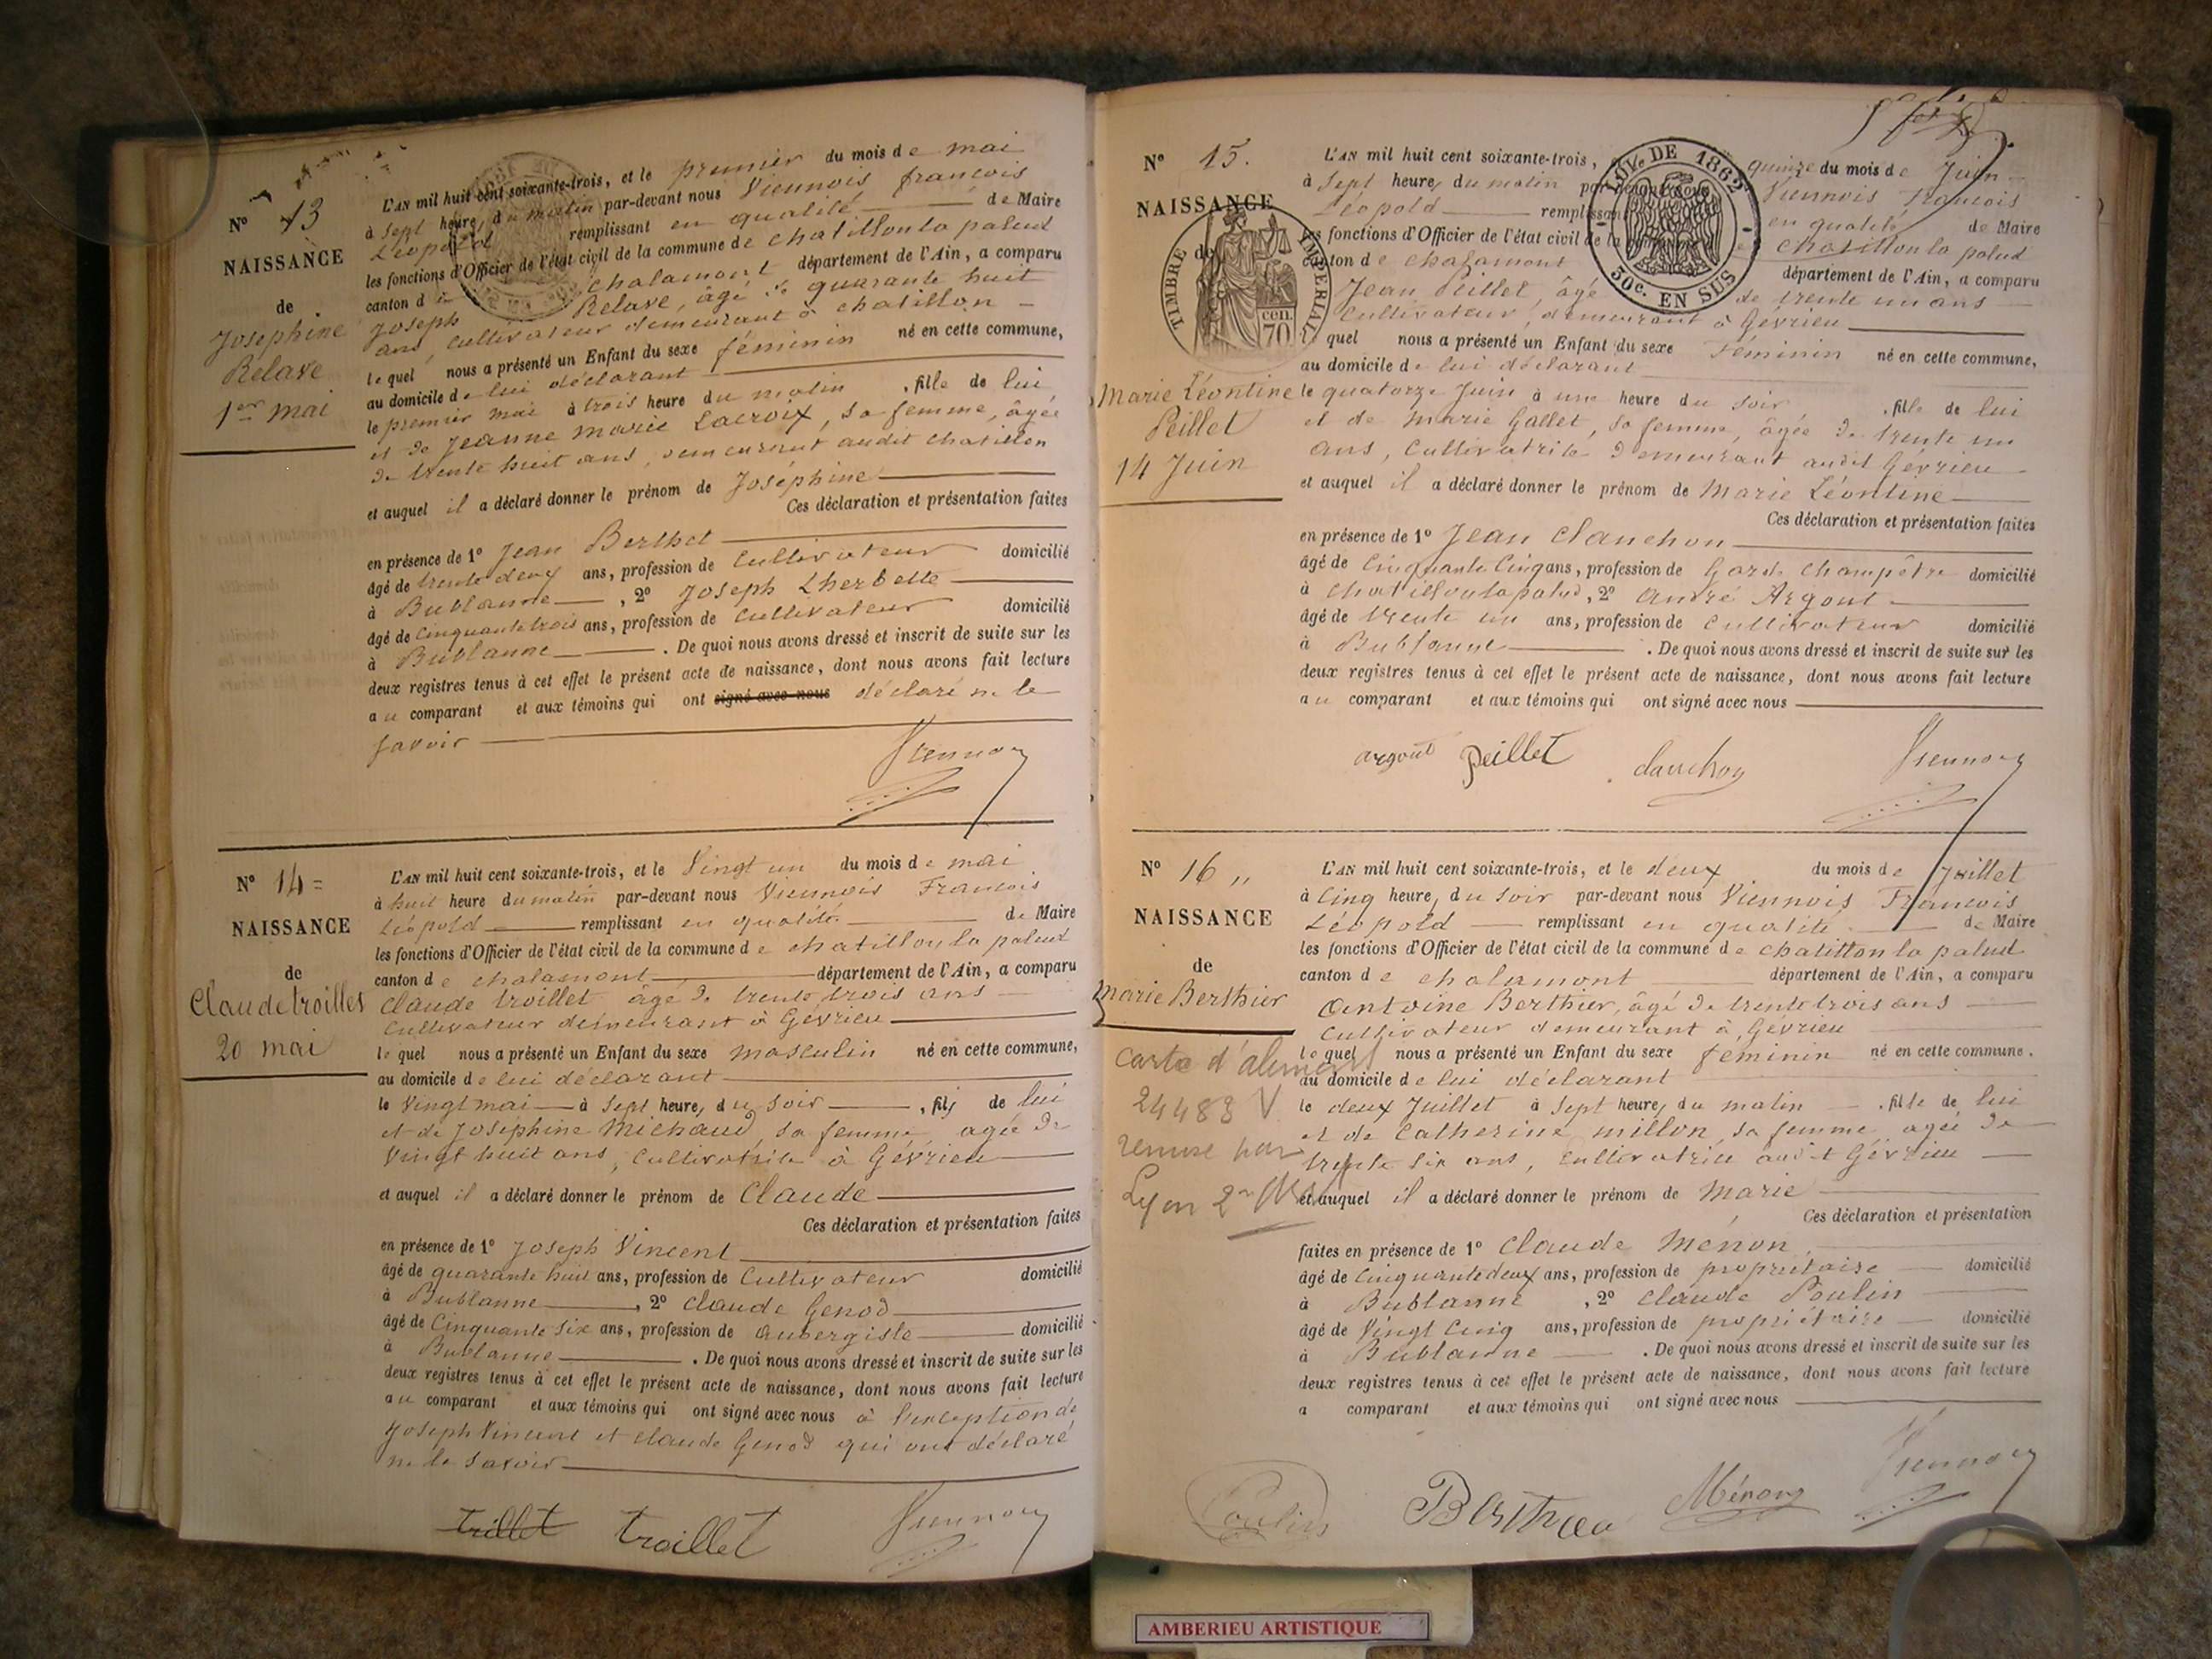 N° 13
NAISSANCE
de
Josephine
Relave
1er mai
L'AN mil huit cent soixante-trois, et le premier du mois de mai
à Sept heure, du matin par-devant nous Viennois francois
Léopold remplissant en qualité de Maire
les fonctions d'Officier de l'état civil de la commune de chatillon la palud
canton de chalamont département de l'Ain, a comparu
Joseph Relave, âgé de quarante huit
ans, cultivateur demeurant à chatillon
lequel nous a présenté un Enfant du sexe féminin né en cette commune,
au domicile de lui déclarant
le premier mai à trois heure du matin , fille de lui
et de Jeanne marie Lacroix, sa femme, âgée
de trente huit ans, demeurant audit chatillon
et auquel il a déclaré donner le prénom de Joséphine
Ces déclaration et présentation faites
en présence de 1° Jean Berthet
âgé de trente deux ans, profession de Cultivateur domicilié
à Bublanne , 2° Joseph Lherbette
âgé de Cinquante trois ans, profession de Cultivateur domicilié
à Bublanne . De quoi nous avons dressé et inscrit de suite sur les
deux registres tenus à cet effet le présent acte de naissance, dont nous avons fait lecture
au comparant et aux témoins qui ont signé avec nous déclaré ne le
savoir
Viennois
N° 14
NAISSANCE
de
Claude troillet
20 mai
L'AN mil huit cent soixante-trois, et le Vingt un du mois de mai
à huit heure du matin par-devant nous Viennois Francois
Léopold remplissant en qualité de Maire
les fonctions d'Officier de l'état civil de la commune de chatillon la palud
canton de chalamont département de l'Ain, a comparu
Claude troillet âgé de trente trois ans
Cultivateur demeurant à Gévrieu
lequel nous a présenté un Enfant du sexe masculin né en cette commune,
au domicile de lui déclarant
le Vingt mai à Sept heure, du Soir , fils de lui
et de Josephine Michaud, sa femme agée de
Vingt huit ans, Cultivatrice à Gévrieu
et auquel il a déclaré donner le prénom de Claude
Ces déclaration et présentation faites
en présence de 1° Joseph Vincent
âgé de quarante huit ans, profession de Cultivateur domicilié
à Bublanne , 2° Claude Genod
âgé de Cinquante Six ans, profession de Aubergiste domicilié
à Bublanne . De quoi nous avons dressé et inscrit de suite sur les
deux registres tenus à cet effet le présent acte de naissance, dont nous avons fait lecture
au comparant et aux témoins qui ont signé avec nous à l'exception de
Joseph Vincent et claude Genod qui ont déclaré
ne le savoir
trillet troillet Viennois
N° 15.
NAISSANCE
de
TIMBRE IMPERIAL
70 cen.
Marie Léontine
Peillet
14 Juin
LOI DE 1862
30c. EN SUS
L'AN mil huit cent soixante-trois, quinze du mois de Juin
à Sept heure, du matin par-devant nous Viennois Francois
Léopold remplissant en qualité de Maire
les fonctions d'Officier de l'état civil de la commune de chatillon la palud
canton de chalamont département de l'Ain, a comparu
Jean Peillet, âgé de trente un ans
Cultivateur, demeurant à Gévrieu
lequel nous a présenté un Enfant du sexe Féminin né en cette commune,
au domicile de lui déclarant
le quatorze Juin à une heure du soir , fille de lui
et de Marie Gallet, sa femme, âgée de trente un
ans, Cultivatrice demeurant audit Gévrieu
et auquel il a déclaré donner le prénom de Marie Léontine
Ces déclaration et présentation faites
en présence de 1° Jean Clanchon
âgé de Cinquante Cinq ans, profession de Garde Champêtre domicilié
à Chatillon la palud, 2° André Argout
âgé de trente un ans, profession de Cultivateur domicilié
à Bublanne . De quoi nous avons dressé et inscrit de suite sur les
deux registres tenus à cet effet le présent acte de naissance, dont nous avons fait lecture
au comparant et aux témoins qui ont signé avec nous
argout peillet clanchon Viennois
N° 16
NAISSANCE
de
Marie Berthier
carte d'aliment
24483 V
remise par
Lyon 2e
L'AN mil huit cent soixante-trois, et le deux du mois de Juillet
à Cinq heure, du Soir par-devant nous Viennois Francois
Léopold remplissant en qualité de Maire
les fonctions d'Officier de l'état civil de la commune de chatillon la palud
canton de chalamont département de l'Ain, a comparu
Antoine Berthier, âgé de trente trois ans
Cultivateur demeurant à Gévrieu
lequel nous a présenté un Enfant du sexe féminin né en cette commune.
au domicile de lui déclarant
le deux Juillet à Sept heure, du matin , fille de lui
et de Catherine millon, sa femme agée de
trente six ans, Cultivatrice audit Gévrieu
et auquel il a déclaré donner le prénom de Marie
Ces déclaration et présentation
faites en présence de 1° Claude Ménon
âgé de Cinquante deux ans, profession de propriétaire domicilié
à Bublanne , 2° Claude Poulin
âgé de Vingt Cinq ans, profession de propriétaire domicilié
à Bublanne . De quoi nous avons dressé et inscrit de suite sur les
deux registres tenus à cet effet le présent acte de naissance, dont nous avons fait lecture
a comparant et aux témoins qui ont signé avec nous
Poulin Berthier Ménon Viennois
AMBERIEU ARTISTIQUE